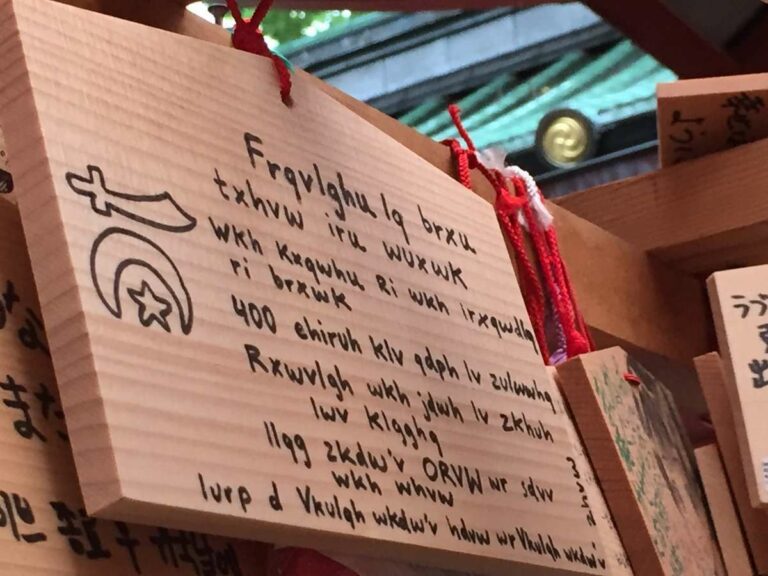 Frqvlghu lq brxu
txhvw iru wuxwk
wkh kxqwhu Ri wkh irxqwdlq
ri brxwk
400 ehiruh klv qdph lv zulwwhq
Rxwvlgh wkh jdwh lv zkhuh
lwv klgghq
Ilqg zkdw'v ORVW wr sdvv
wkh whvw
Iurp d Vkulqh wkdw'v hdvw wr Vkulqh wkdw'v
zhvw
また